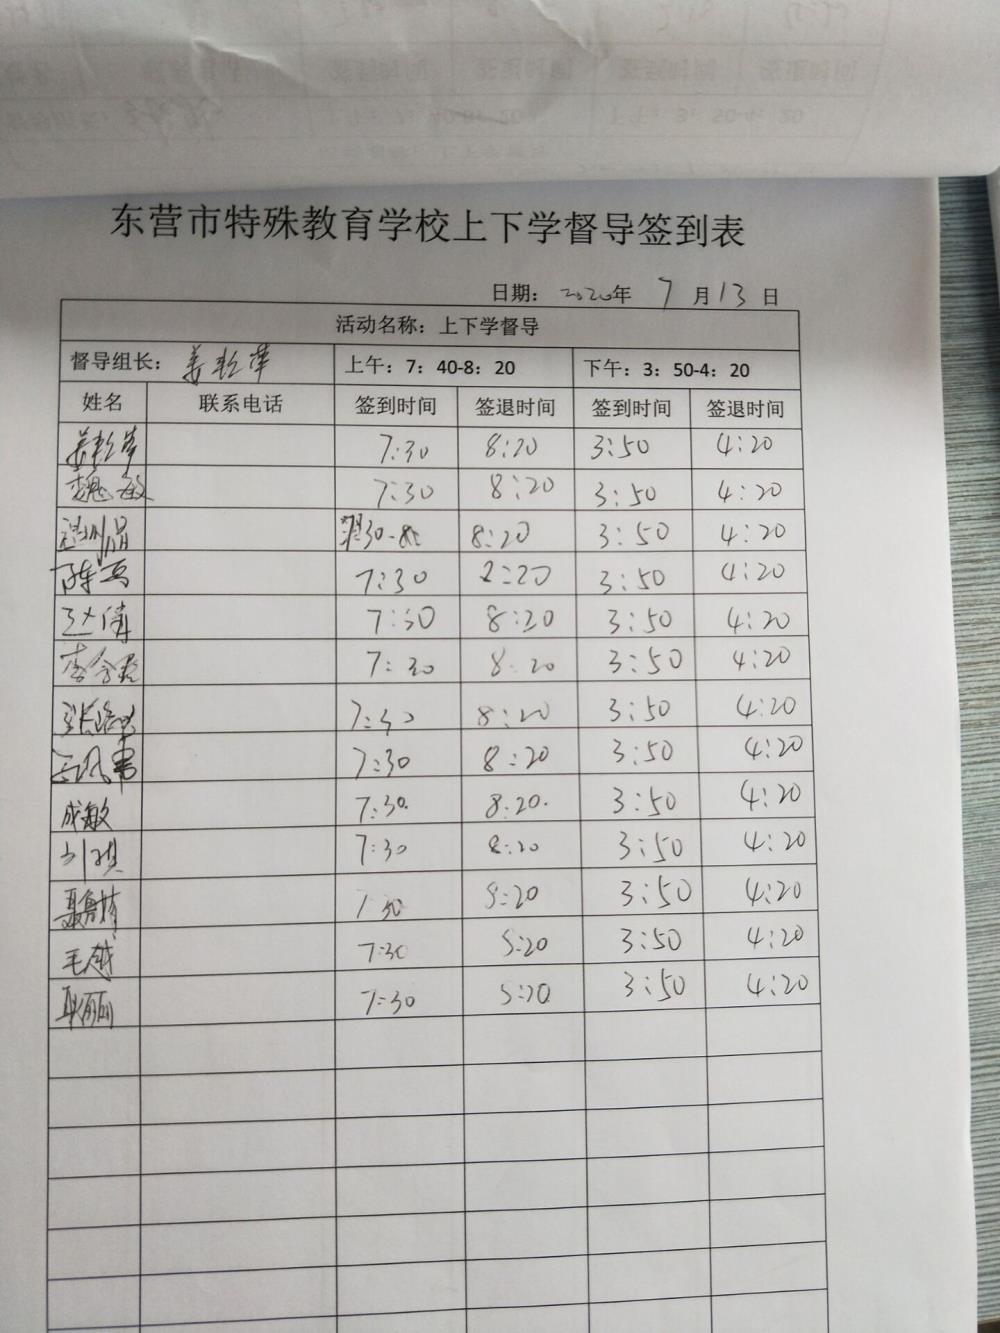 东营市特殊教育学校上下学督导签到表
日期： 2020年 7 月 13 日
活动名称：上下学督导
督导组长： 上午：7：40-8：20 下午：3：50-4：20
姓名 联系电话 签到时间 签退时间 签到时间 签退时间
7:30 8:20 3:50 4:20
魏敏 7:30 8:20 3:50 4:20
8:20 3:50 4:20
7:30 8:20 3:50 4:20
7:30 8:20 3:50 4:20
7:30 8:20 3:50 4:20
7:30 8:20 3:50 4:20
7:30 8:20 3:50 4:20
成敏 7:30. 8:20. 3:50 4:20
7:30 8:20 3:50 4:20
7:30 8:20 3:50 4:20
毛越 7:30 3:50 4:20
耿丽丽 7:30 3:50 4:20